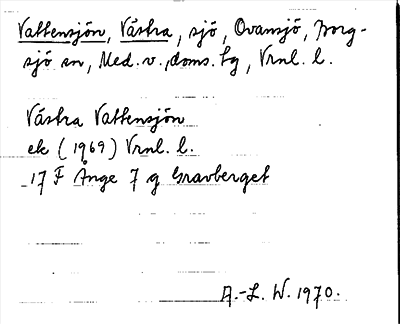 Vattensjön, Västra, sjö, Ovansjö, Borg-
sjö sn, Med. v., doms. tg, Vrnl. l.
Västra Vattensjön
ek (1969) Vrnl. l.
17 F Ånge 7 g Gravberget
A.-L. W. 1970.